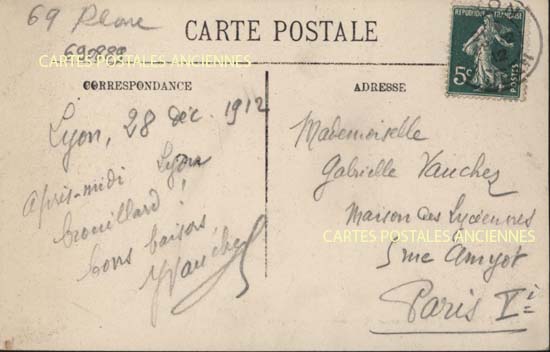 69 Rhone
692889
CARTE POSTALE
CARTES POSTALES ANCIENNES
CORRESPONDANCE
ADRESSE
RÉPUBLIQUE FRANÇAISE
5c
POSTES
Lyon, 28 déc. 1912
Après-midi Lyon
brouillard !
bons baisers,
YVauchez
Mademoiselle
Gabrielle Vauchez
Maison des Lycéennes
CARTES POSTALES ANCIENNES
5 rue Amyot
Paris Ve